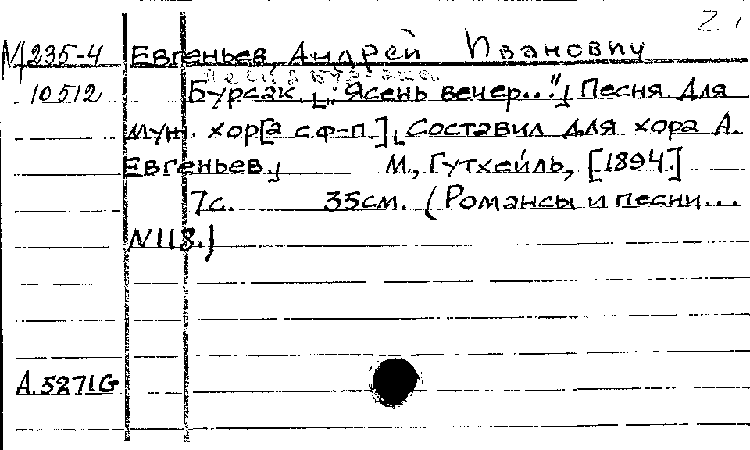 М 235-4 Евгеньев, Андрей Иванович
10512 Бурсак. [„Ясень вечер..."] Песня для
муж. хор[а с ф-п.] [Составил для хора А.
Евгеньев.] М., Гутхейль, [1894.]
7с. 35см. (Романсы и песни...
N118.)
А.5271G